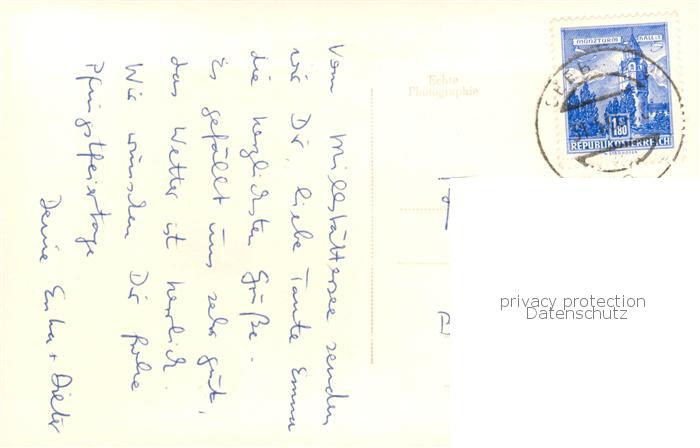 Vom Millstättersee senden
wir Dir, liebe Tante Emma
die herzlichsten Grüße.
Es gefällt uns sehr gut,
das Wetter ist herrlich.
Wir wünschen Dir frohe
Pfingstfeiertage
Deine Erika + Dieter
Echte
Photographie
MÜNZTURM HALL i. T.
1.80
REPUBLIK ÖSTERREICH
privacy protection
Datenschutz